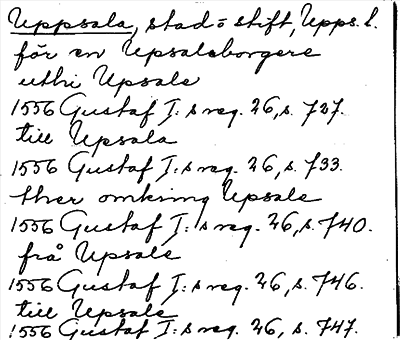 Uppsala, stad o stift, Upps. l.
för en Upsaleborgere
uthi Upsale
1556 Gustaf I:s reg. 26, s. 727.
till Upsala
1556 Gustaf I:s reg. 26, s. 733.
ther omkring Upsale
1556 Gustaf I:s reg. 26, s. 740.
från Upsale
1556 Gustaf I:s reg. 26, s. 746.
till Upsale
1556 Gustaf I:s reg. 26, s. 747.